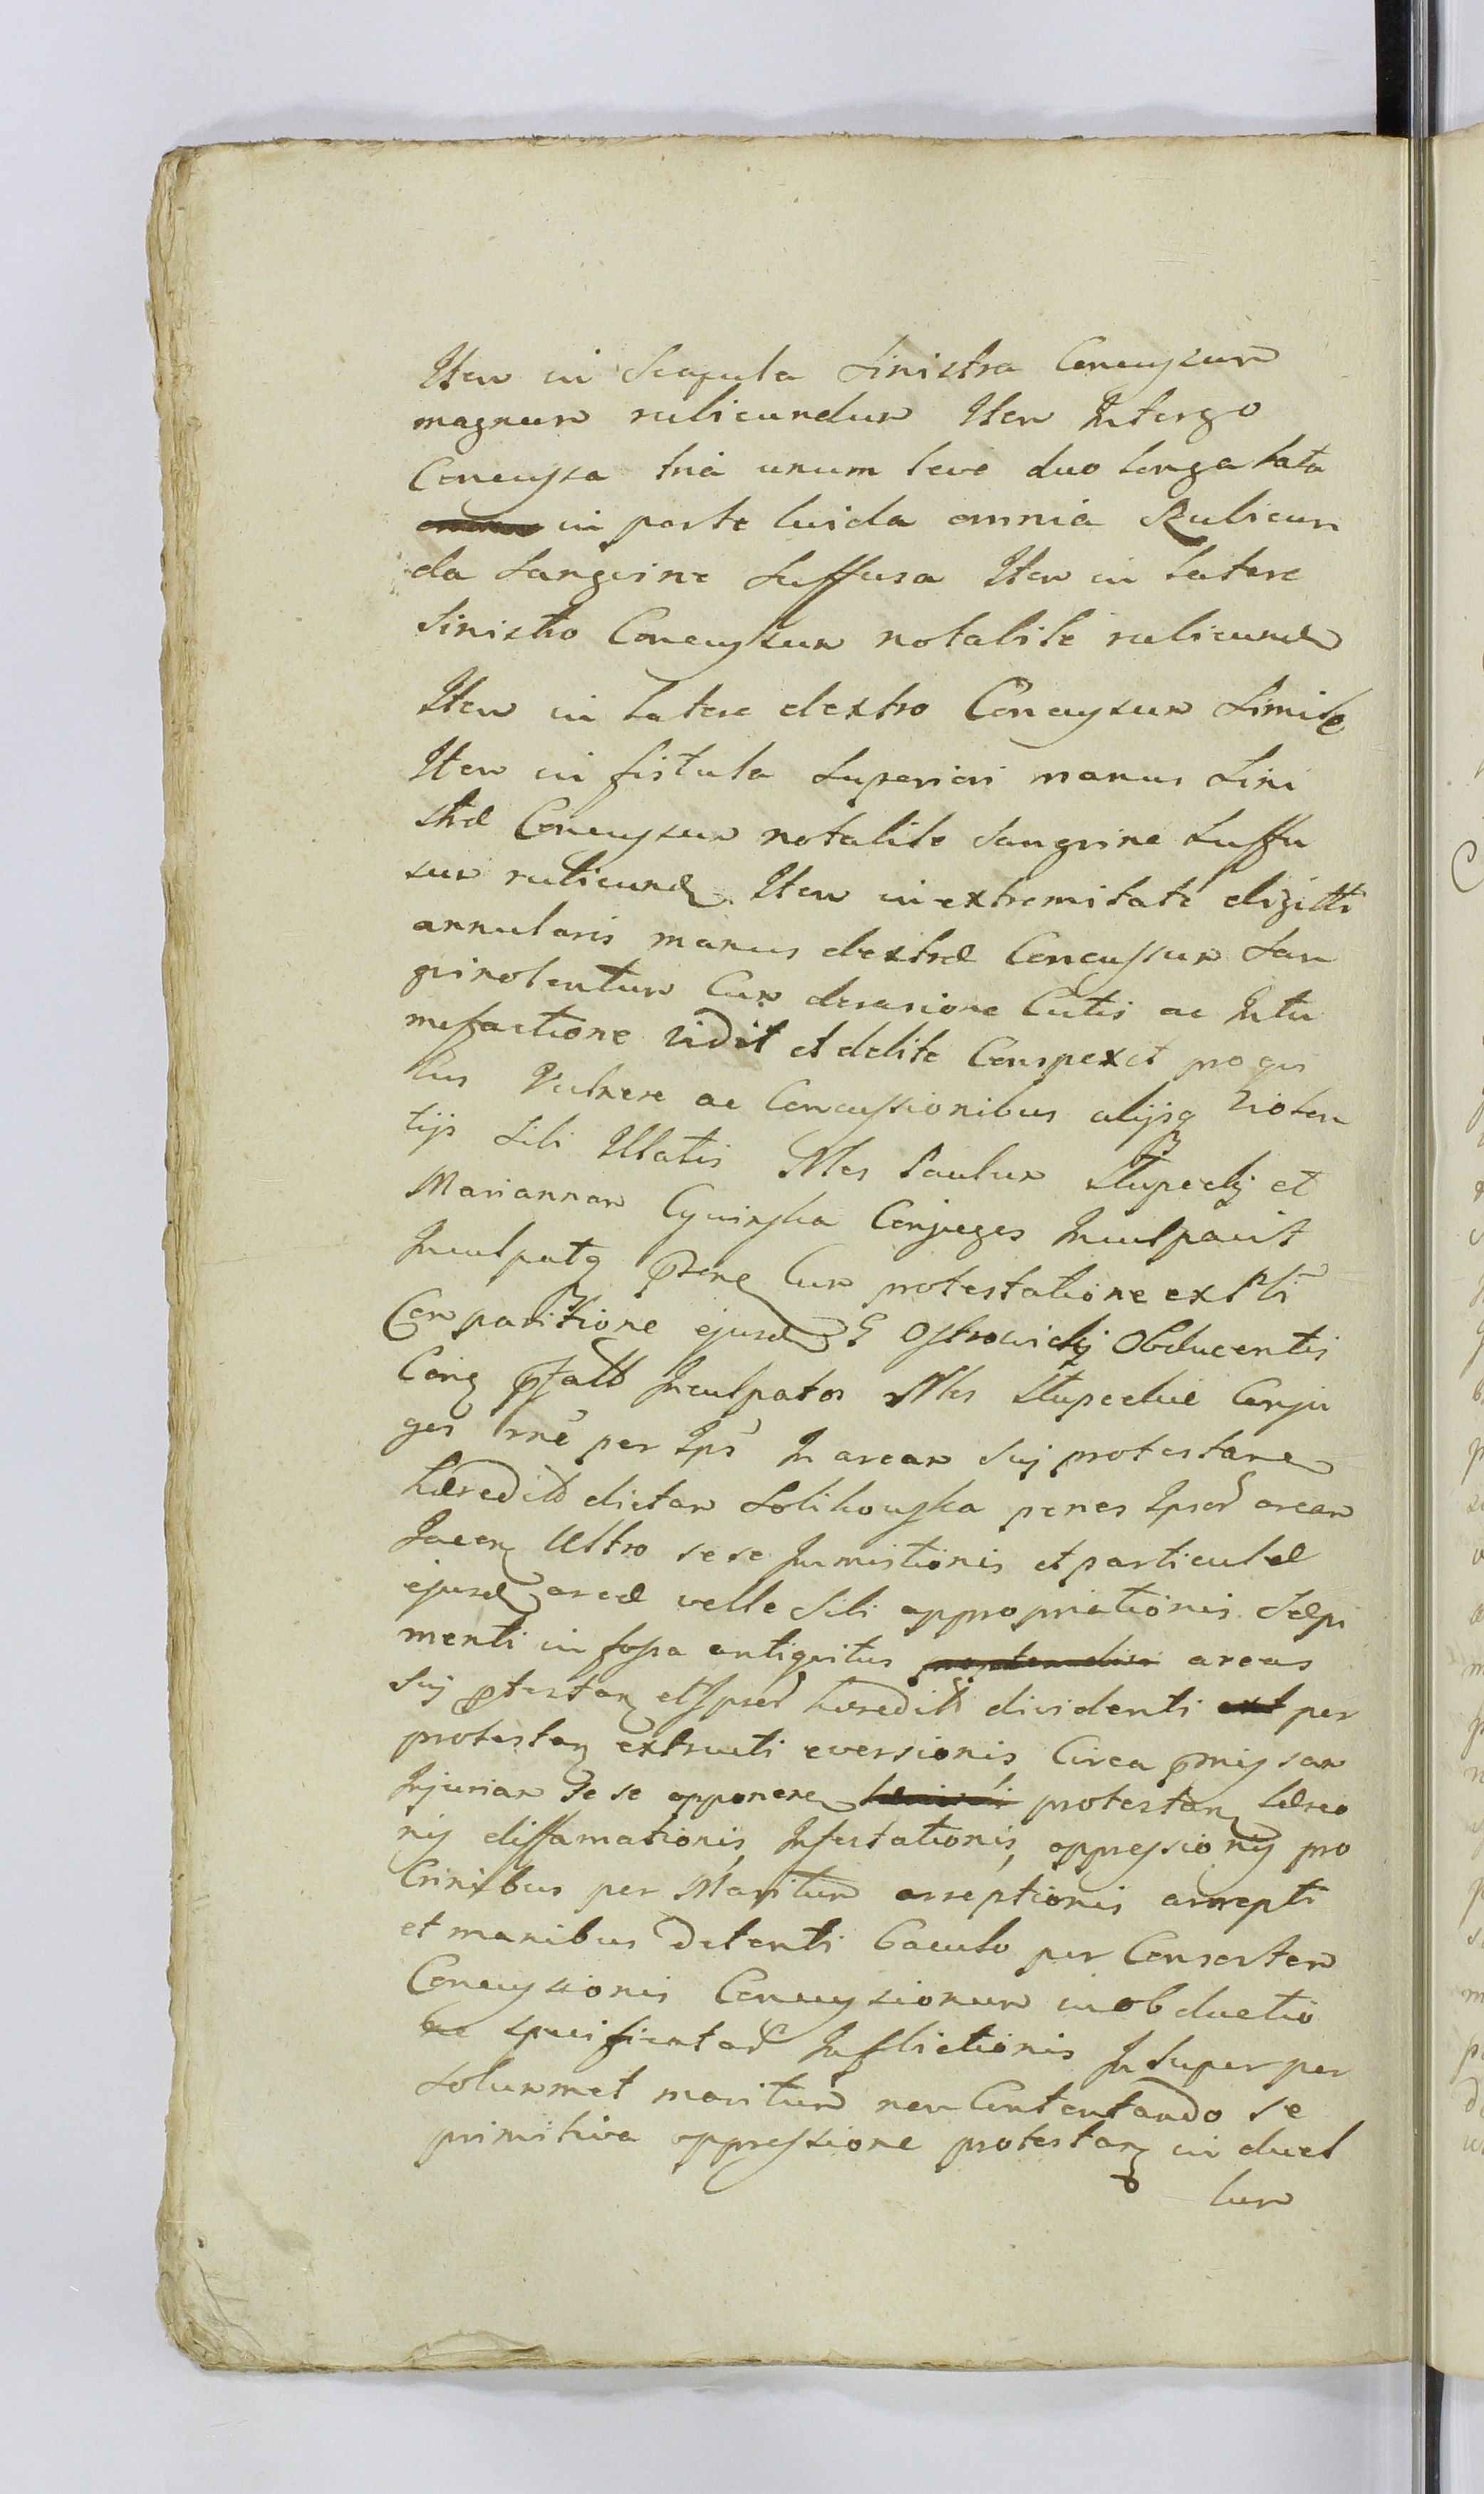 Item in Scapula Sinistra Concussum
magnum rubicundum Item In tergo
Concussa tria unum leve duo longa lata
in parte livida omnia Rubicun
da Sanguine Suffusa Item in Latere
Sinistro Concussum notabile rubicund
Item in Latere dextro Concussum Simile
Item in fistula Superiori manus Sini
stræ Concussum notabile Sanguine Suffu
sum rubicund Item in extremitate digitti
annularis manus dextræ Concussum San
guinolentum Cum derasione Cutis ac Intu
mefactione vidit et debite Conspexit pro qui
bus Vulnere ac Concussionibus alijsq violen
tijs Sibi Illatis Nles Paulum Slupecky et
Mariannam Cywinska Conjuges Inculpavit
Inculpatq Cum protestatione ex
Comparitione ejusd G Ostrowicky Obducentis
Conq Inculpatos Nles Slupeckie Conju
ges per In aream Suj protestane
hæredit dictam Solikowska penes aream
Jacen Ultro se se Inmistionis et particulæ
ejusd areæ velle Sibi appropriationis Sæpi
menti in fossa antiquitus areas
Suj et hæredit dividenti per
protestan extructi eversionis Circa
Injuriam Se se opponen protestan læsio
nis diffamationis, Infestationis, oppressionis pro
Crinibus per Maritum arreptionis arrepti
et manibus Detenti baculo per Consortem
Concussionis Concussionum in obductio
ne specificatar Inflictionis Insuper per
Solummet maritum non Contentando Se
primitiva oppressione protestan in duel
lum